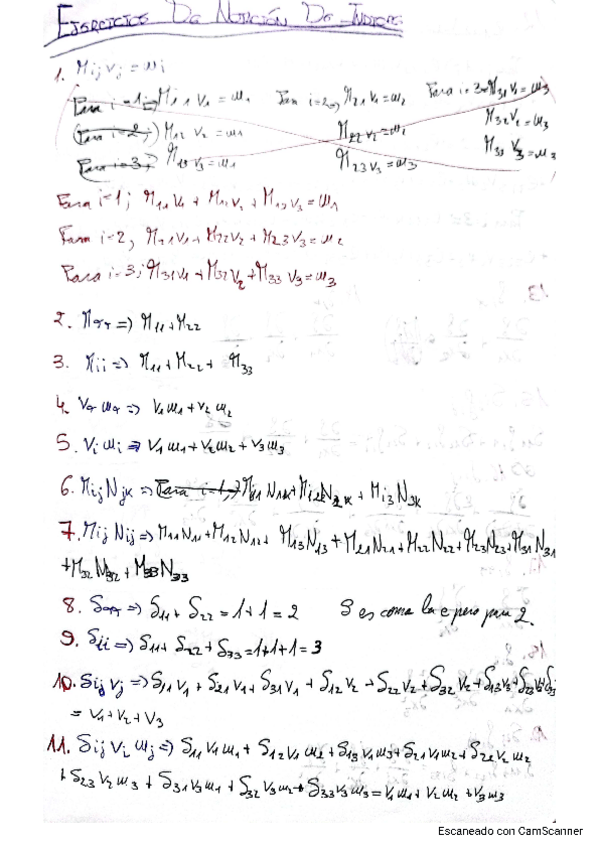 Ejercicios De Notación De Índices
1. Mij vj = wi
Para i=1 => M11 v1 = w1 Para i=2 => M21 v1 = w2 Para i=3 => M31 v1 = w3
(Para i=2;) M12 v2 = w1 M22 v2 = w2 M32 v2 = w3
Para i=3; M13 v3 = w1 M23 v3 = w3 M33 v3 = w3
Para i=1; M11 v1 + M12 v2 + M13 v3 = w1
Para i=2, M21 v1 + M22 v2 + M23 v3 = w2
Para i=3; M31 v1 + M32 v2 + M33 v3 = w3
2. Mσσ => M11 + M22
3. Mii => M11 + M22 + M33
4. vσ wσ => v1 w1 + v2 w2
5. vi wi => v1 w1 + v2 w2 + v3 w3
6. Mij Njk => Para i=1,=> Mi1 N1k + Mi2 N2k + Mi3 N3k
7. Mij Nij => M11 N11 + M12 N12 + M13 N13 + M21 N21 + M22 N22 + M23 N23 + M31 N31
+ M32 N32 + M33 N33
8. δσσ => δ11 + δ22 = 1+1 = 2 es como la pero para 2.
9. δii => δ11 + δ22 + δ33 = 1+1+1 = 3
10. δij vj => δ11 v1 + δ21 v1 + δ31 v1 + δ12 v2 + δ22 v2 + δ32 v2 + δ13 v3 + δ23 v3 + δ3
= v1 + v2 + v3
11. δij vi wj => δ11 v1 w1 + δ12 v1 w2 + δ13 v1 w3 + δ21 v1 w2 + δ22 v2 w2
+ δ23 v2 w3 + δ31 v3 w1 + δ32 v3 w2 + δ33 v3 w3 = v1 w1 + v2 w2 + v3 w3
Escaneado con CamScanner